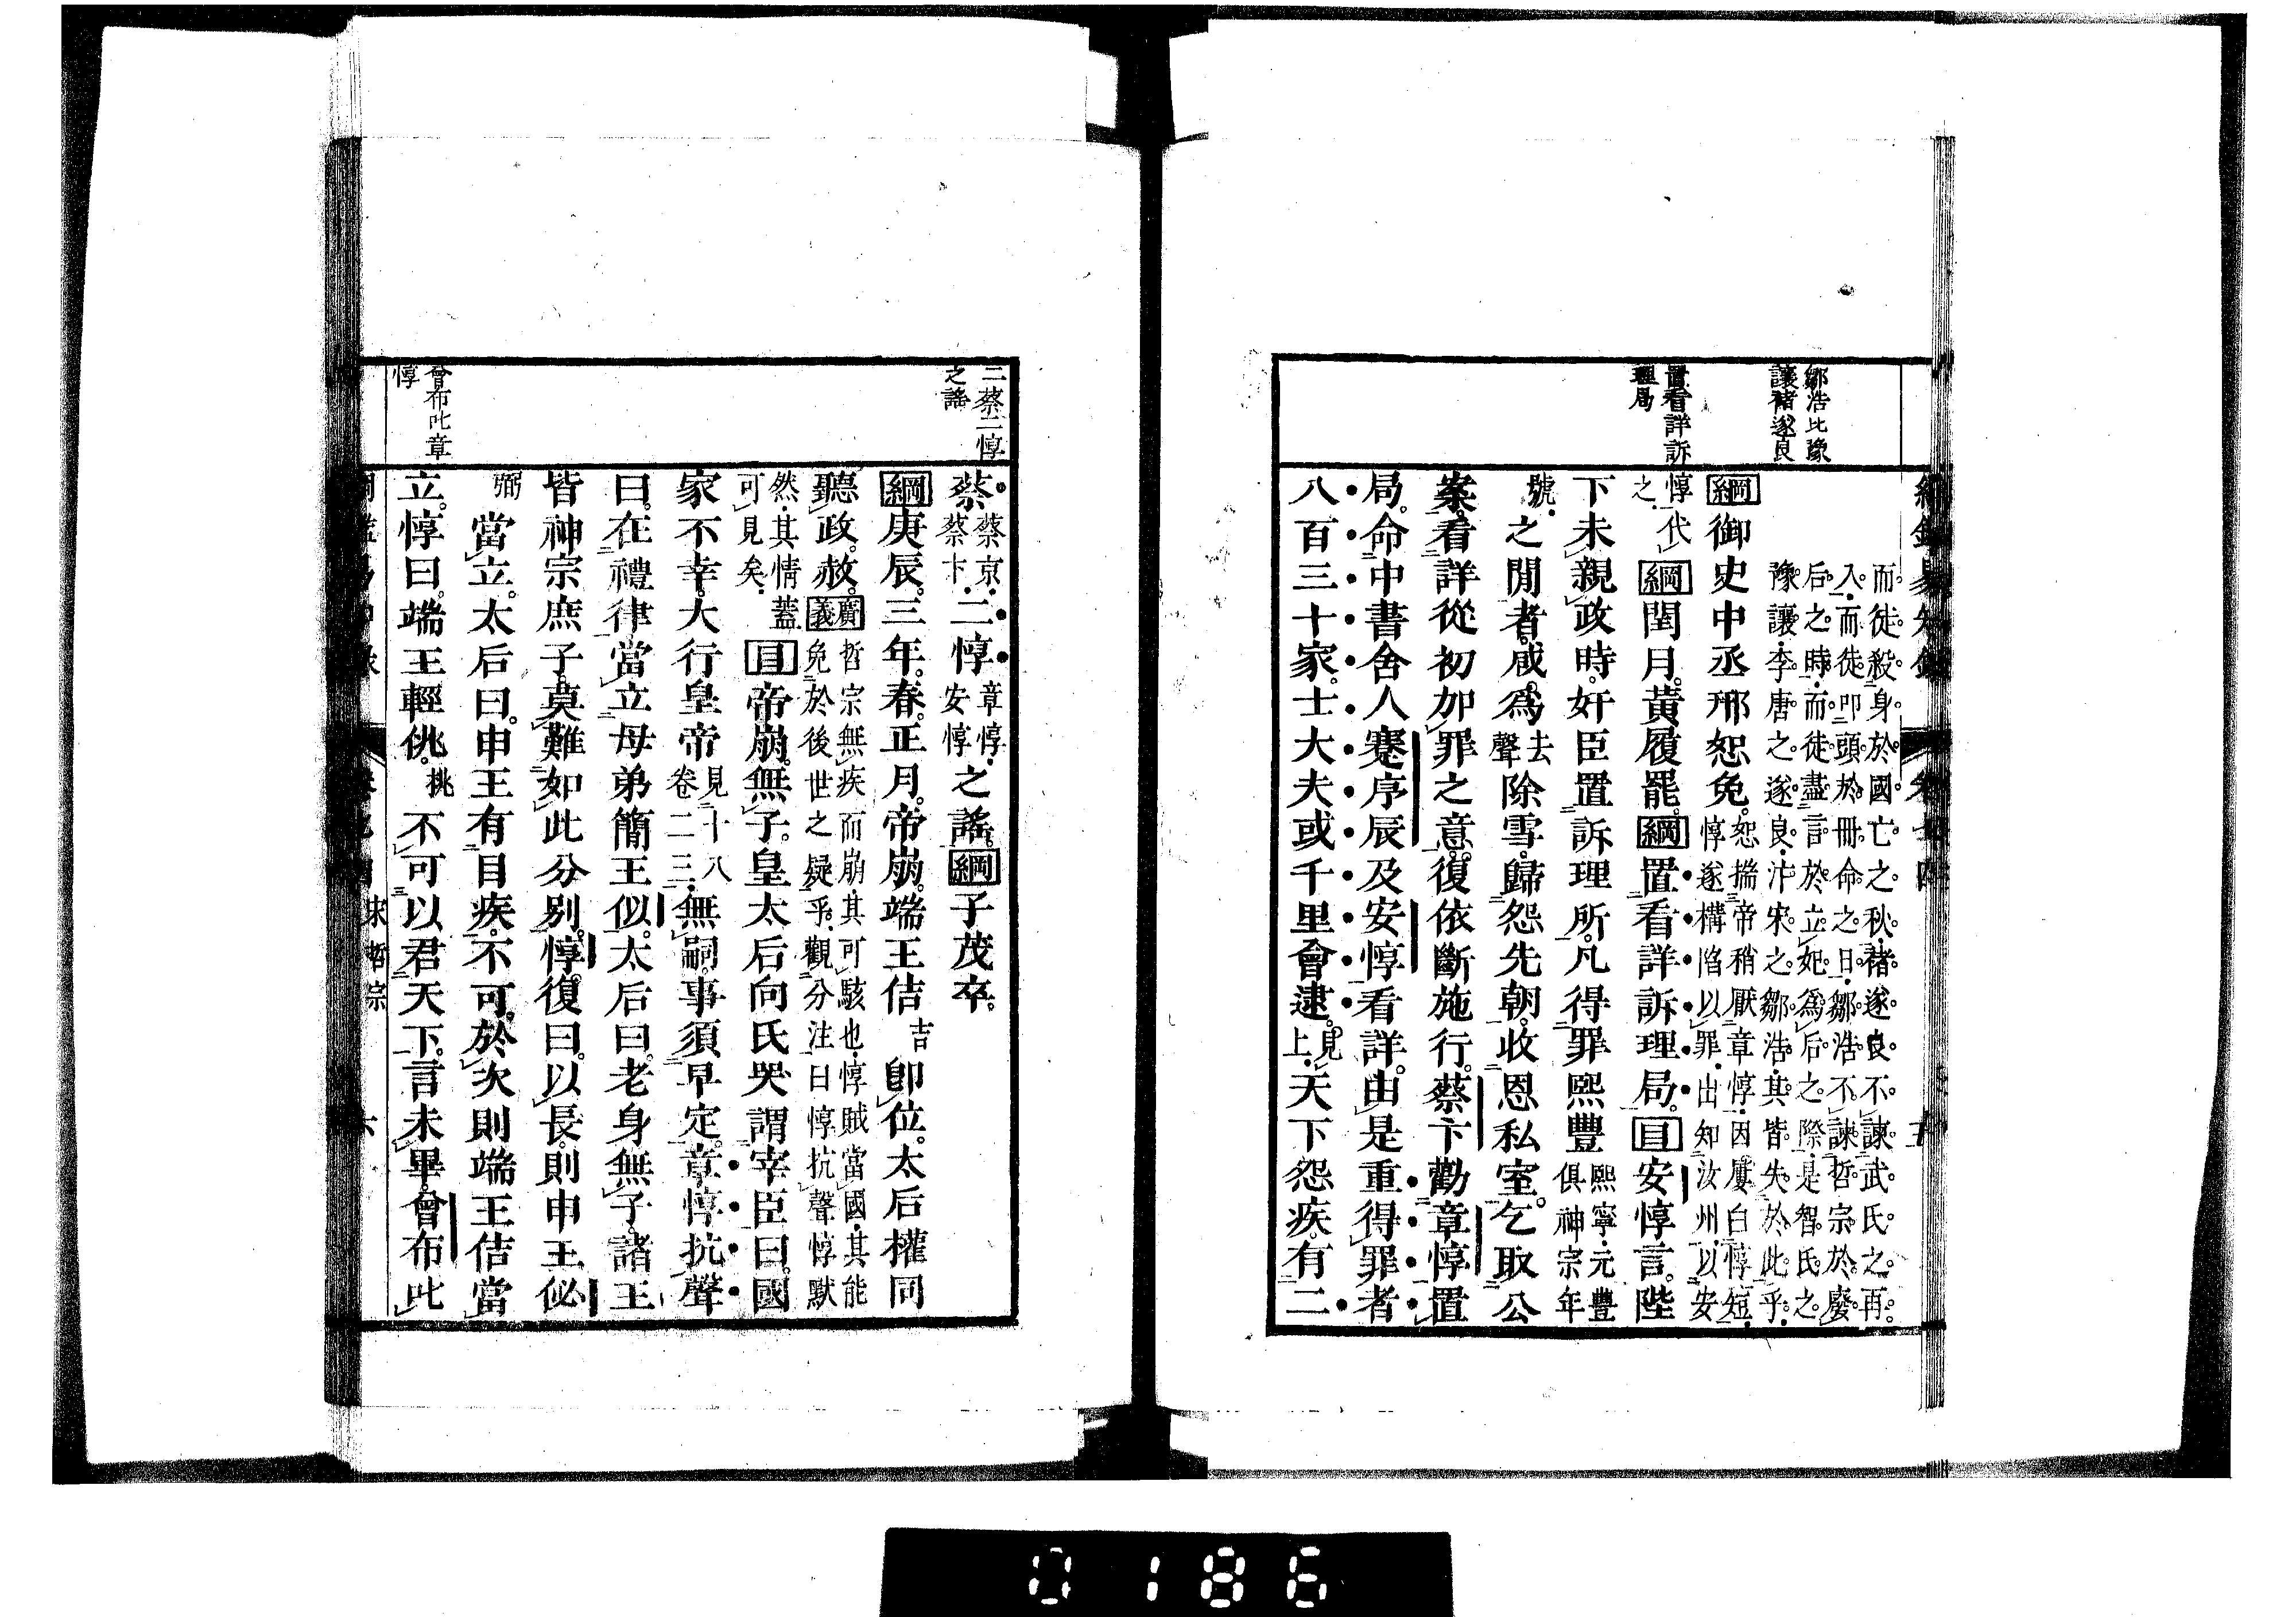 鄒浩比豫
讓褚遂良
置看詳訴
理局
而徒殺身於國亡之秋褚遂良不諫武氏之再
入而徒叩頭於冊命之日鄒浩不諫哲宗於廢
后之時而徒盡言於立妃爲后之際是智氏之
豫讓李唐之遂良汴宋之鄒浩其皆失於此乎
綱御史中丞邢恕免恕揣帝稍厭章惇因屢白惇短
惇遂構陷以罪出知汝州以安
惇代
之綱閏月黃履罷綱置看詳訴理局目安惇言陛
下未親政時奸臣置訴理所凡得罪熙豐熙寧元豐
俱神宗年
號之閒者咸爲去
聲除雪歸怨先朝收恩私室乞取公
案看詳從初加罪之意復依斷施行蔡卞勸章惇置
局命中書舍人蹇序辰及安惇看詳由是重得罪者
八百三十家士大夫或千里會逮見
上天下怨疾有二
二蔡二惇
之謠
曾布叱章
惇
蔡蔡京
蔡卞二惇章惇
安惇之謠綱子茂卒
綱庚辰三年春正月帝崩端王佶吉卽位太后權同
聽政赦廣義哲宗無疾而崩其可駭也惇賊當國其能
免於後世之疑乎觀分注曰惇抗聲惇默
然其情蓋
可見矣目帝崩無子皇太后向氏哭謂宰臣曰國
家不幸大行皇帝見十八
卷二三無嗣事須早定章惇抗聲
曰在禮律當立母弟簡王似太后曰老身無子諸王
皆神宗庶子莫難如此分別惇復曰以長則申王佖
弼當立太后曰申王有目疾不可於次則端王佶當
立惇曰端王輕佻挑不可以君天下言未畢曾布叱
宋哲宗
六